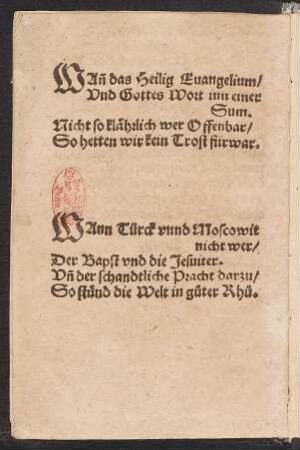 WAñ das Heilig Euangelium/
Vnd Gottes Wort inn einer
Sum.
Nicht so klährlich wer Offenbar/
So hetten wir kein Trost fürwar.
WAnn Türck vnnd Moscowit
nicht wer/
Der Bapst vnd die Jesuiter.
Vñ der schandtliche Pracht darzu/
So stünd die Welt in güter Rhü.